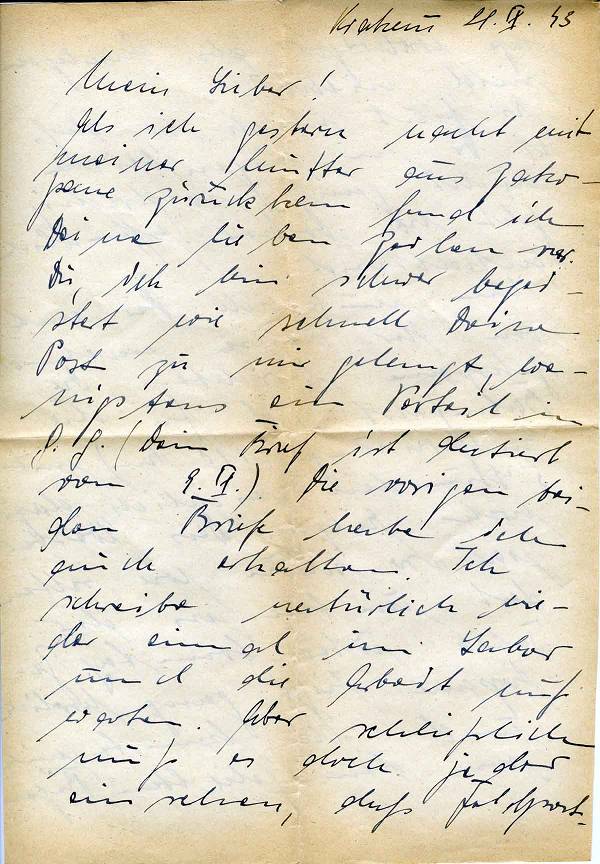 Krakau 21. IX. 43
Mein Lieber!
Als ich gestern nacht mit
meiner Mutter aus Zako-
pane zurückkam fand ich
Deine lieben Zeilen vor.
Du, ich bin schwer begei-
stert wie schnell Deine
Post zu mir gelangt, we-
nigstens ein Vorteil im
G. G. (Dein Brief ist datiert
vom 9. IX.) Die vorigen bei-
den Briefe habe ich
auch erhalten. Ich
schreibe natürlich wie-
der einmal im Labor
und die Arbeit muß
warten. Aber schließlich
muß es doch jeder
einsehen, daß Feldpost-